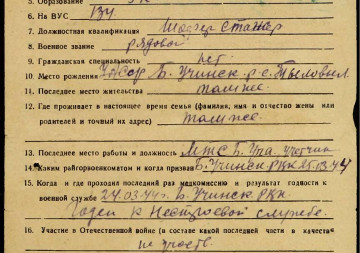 5. Образование
6. На ВУС 134
7. Должностная квалификация Шофер стажер
8. Военное звание рядовой
9. Гражданская специальность нет
10. Место рождения Б. Учинск
11. Последнее место жительства там же
12. Где проживает в настоящее время семья (фамилия, имя и отчество жены или
родителей и точный их адрес) там же
13. Последнее место работы и должность МТС Б. Уча учетчик
14. Каким райгорвоенкоматом и когда призван Б. Учинск РВК
15. Когда и где проходил последний раз медкомиссию и результат годности к
военной службе 27.03.44 г. Б. Учинск РВК
Годен к нестроевой службе.
16. Участие в Отечественной войне (в составе какой последней части в качестве
не участв.